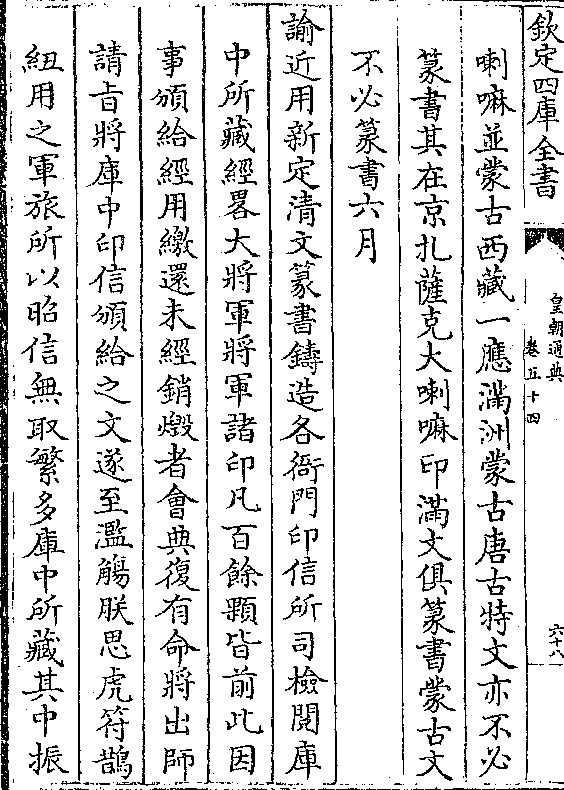 欽定四庫全書
皇朝通典
卷五十四
六十八
喇嘛並蒙古西藏一應滿洲蒙古唐古特文亦不必
篆書其在京扎薩克大喇嘛印滿文俱篆書蒙古文
不必篆書六月
諭近用新定清文篆書鑄造各衙門印信所司檢閱庫
中所藏經畧大將軍將軍諸印凡百餘顆皆前此因
事頒給經用繳還未經銷燬者會典復有命將出師
請旨將庫中印信頒給之文遂至濫觴朕思虎符鵲
紐用之軍旅所以昭信無取繁多庫中所藏其中振